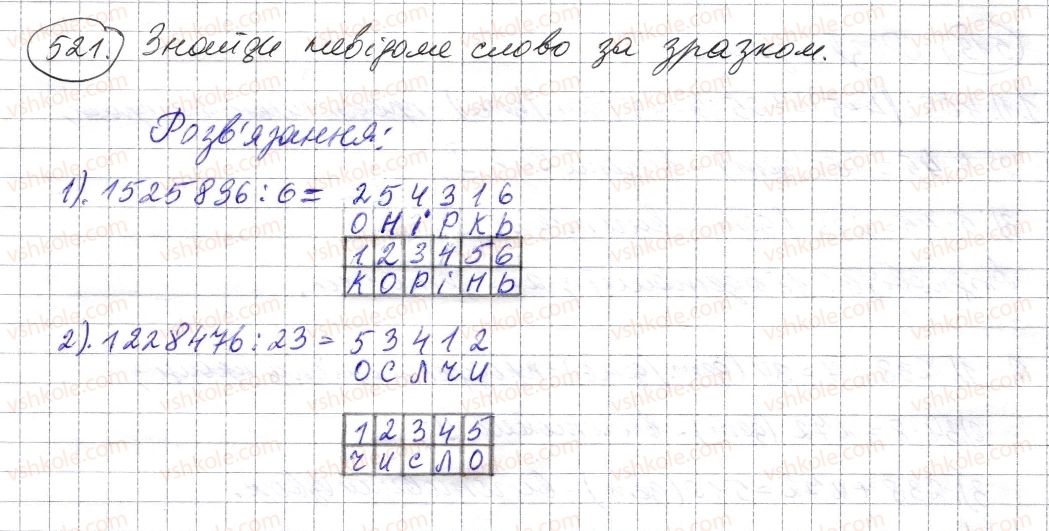 521. Знайди невідоме слово за зразком.
Розв'язання:
1). 1525896 : 6 = 254316
О Н І Р К Ь
1 2 3 4 5 6
К О Р І Н Ь
2). 1228476 : 23 = 53412
О С Л Ч И
1 2 3 4 5
Ч И С Л О